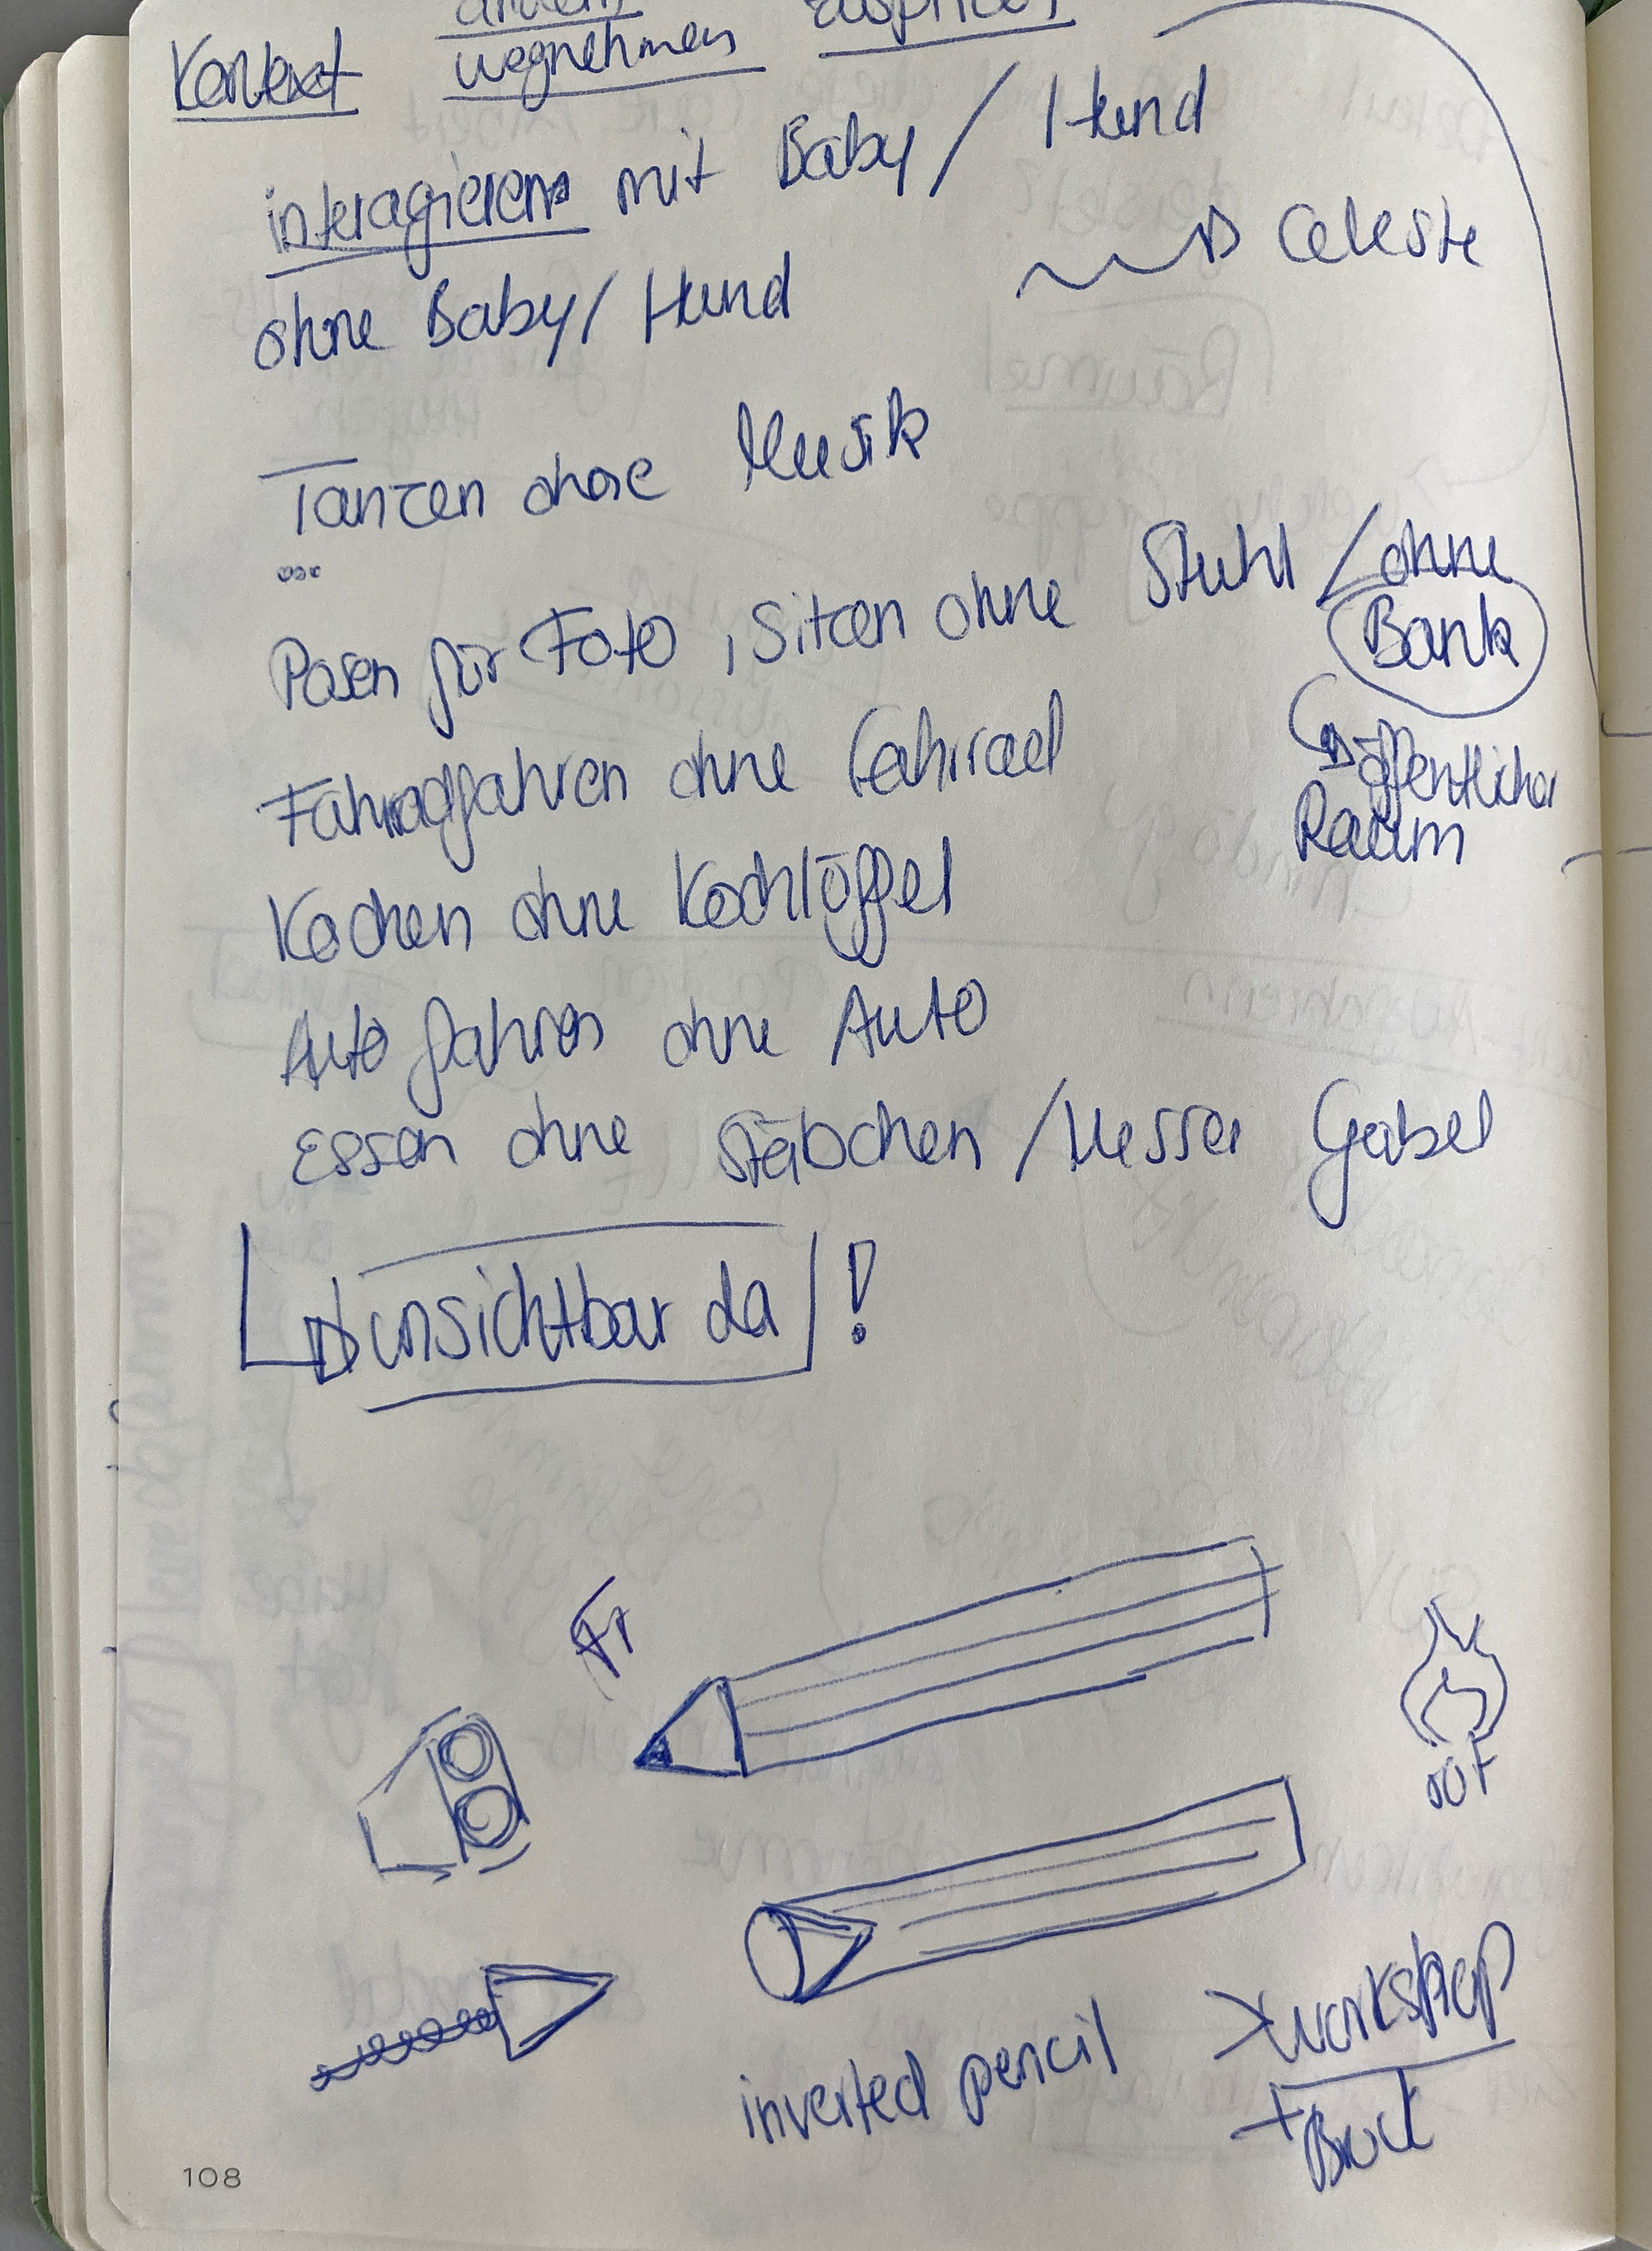 Kontext wegnehmen
interagieren mit Baby / Hund
ohne Baby / Hund → Celeste
Tanzen ohne Musik
...
Posen für Foto, Sitzen ohne Stuhl / ohne
Bank
→ öffentlicher
Raum
Fahrradfahren ohne Fahrrad
Kochen ohne Kochlöffel
Auto fahren ohne Auto
Essen ohne Stäbchen / Messer Gabel
→ unsichtbar da !
inverted pencil
> workshop
+
108